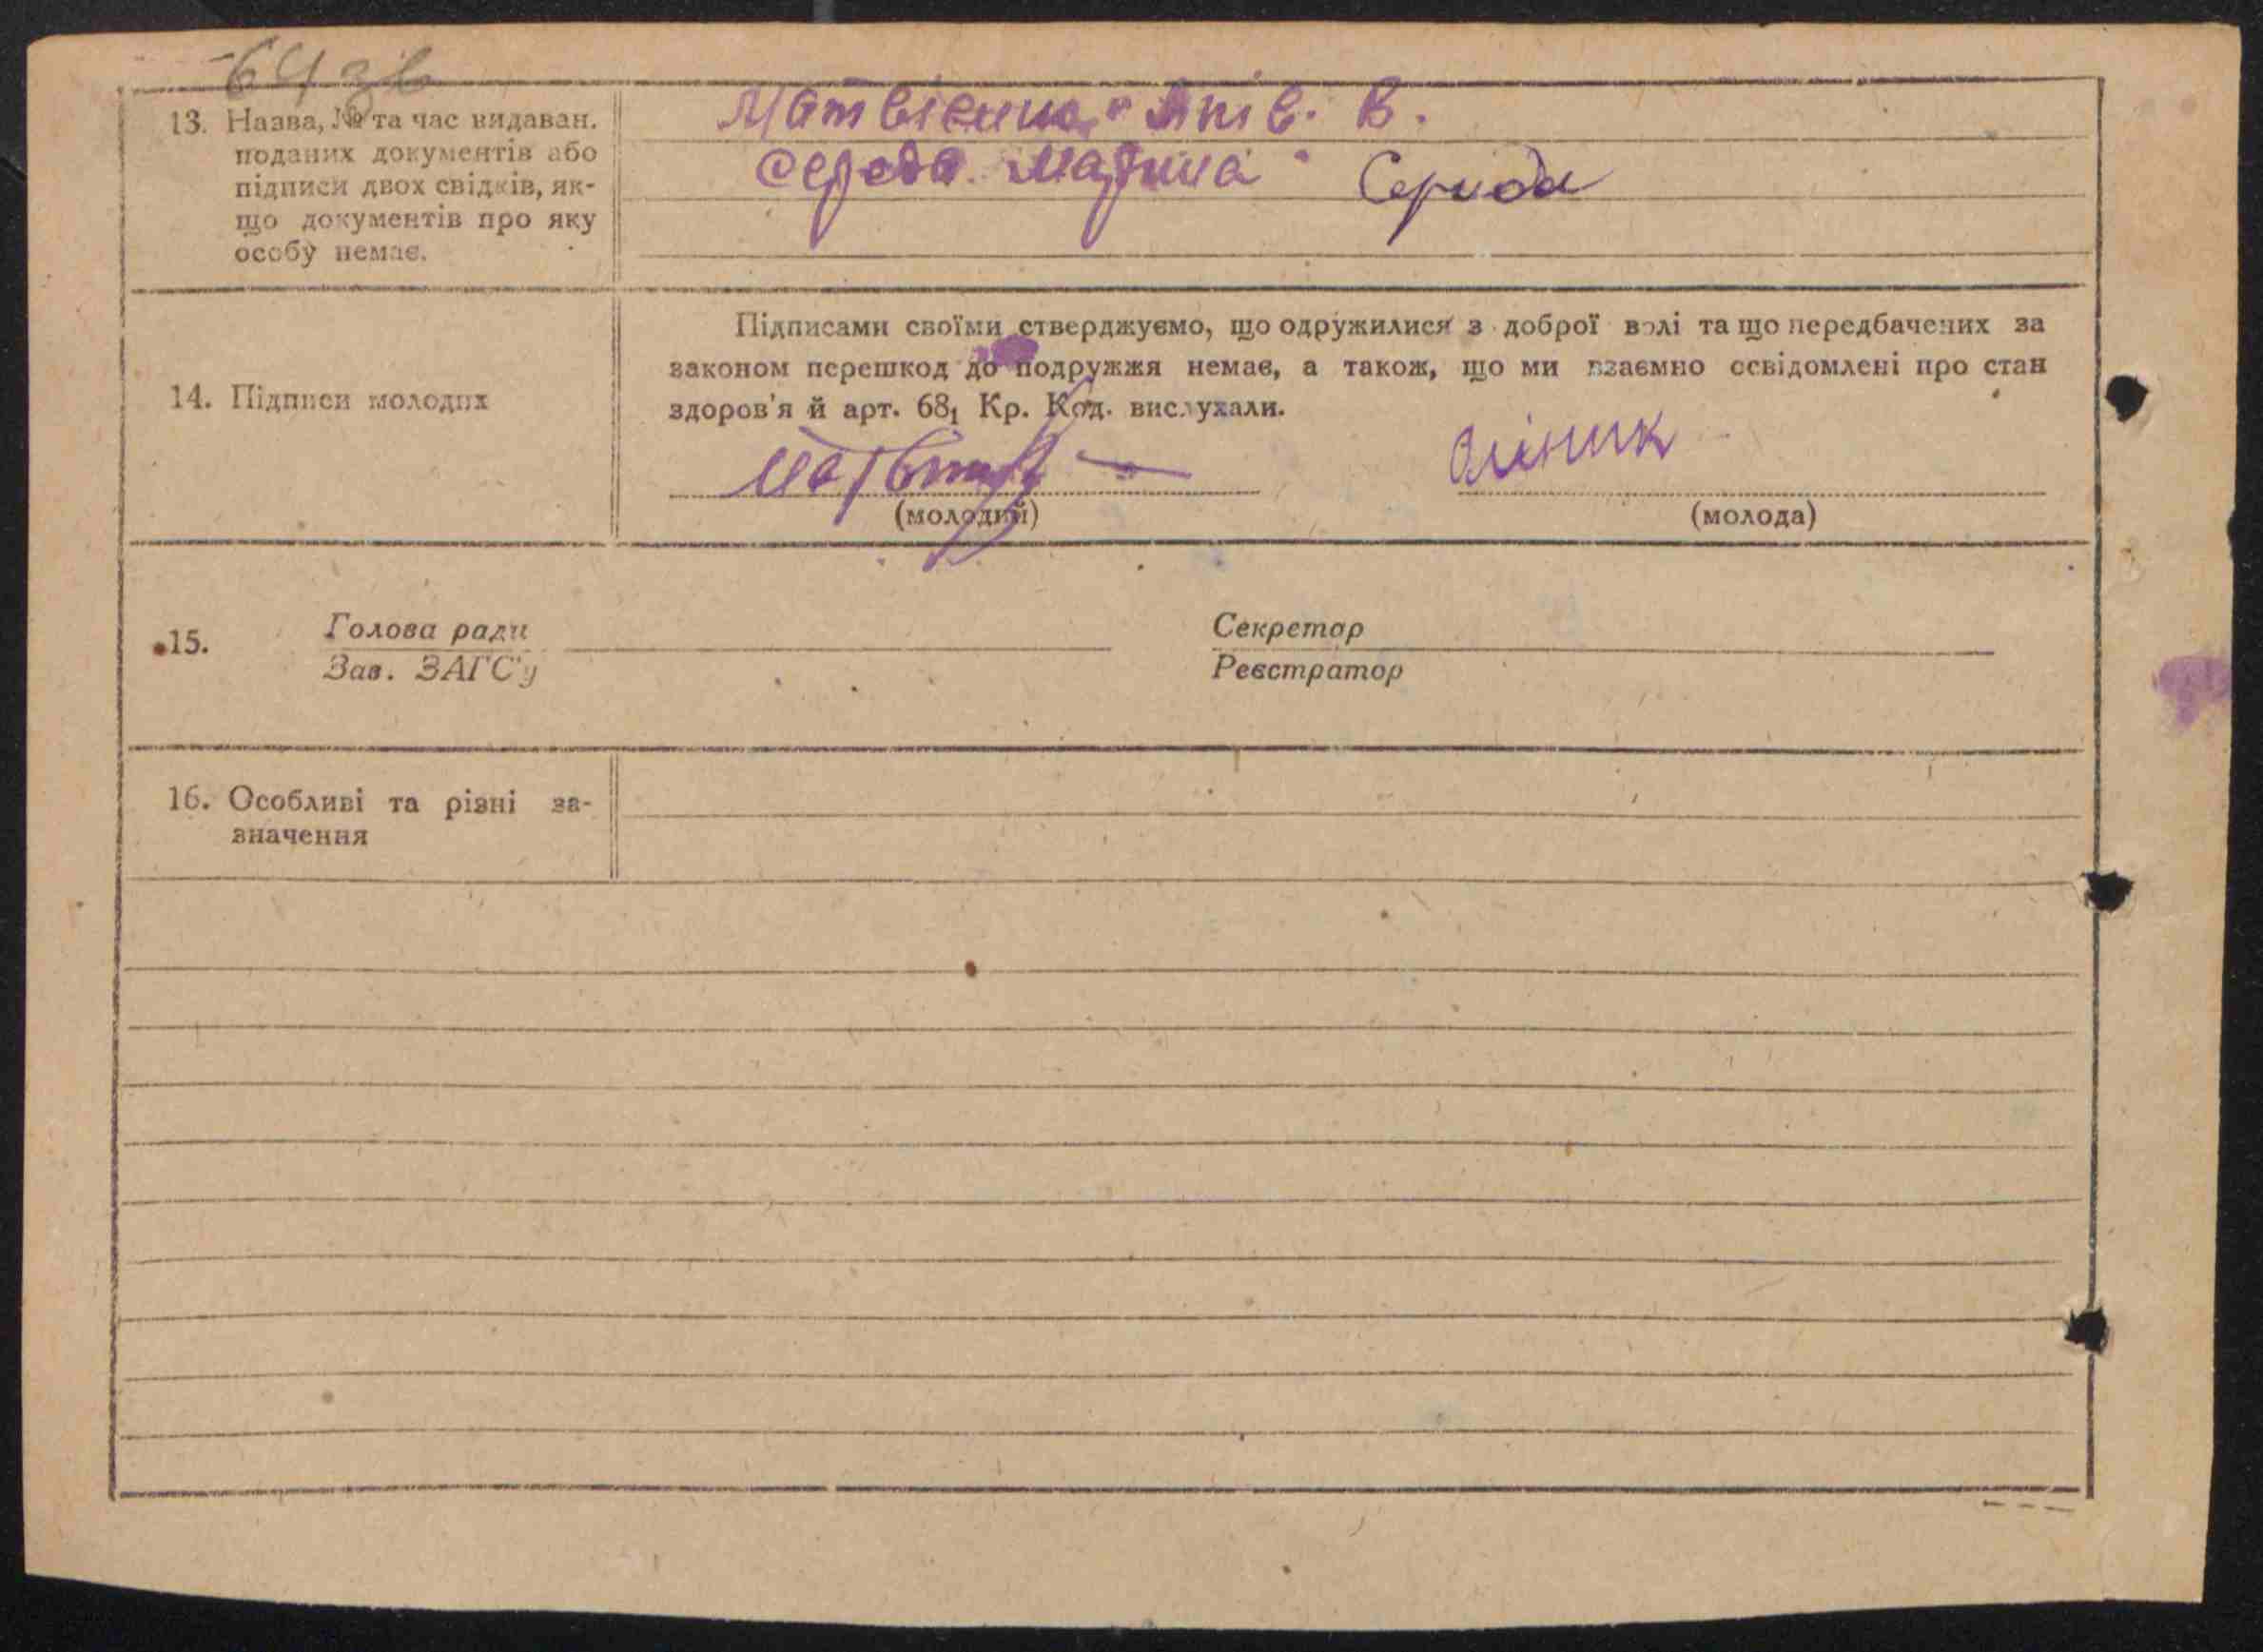 64 зв
13. Назва, № та час видаван.
поданих документів або
підписи двох свідків, як-
що документів про яку
особу немає.
В.
Середа Марина Середа
14. Підписи молодих
Підписами своїми стверджуємо, що одружилися з доброї волі та що передбачених за
законом перешкод до подружжя немає, а також, що ми взаємно освідомлені про стан
здоров'я й арт. 68₁ Кр. Код. вислухали.
Оліник
(молодий) (молода)
15. Голова ради Секретар
Зав. ЗАГС'у Реєстратор
16. Особливі та різні за-
значення